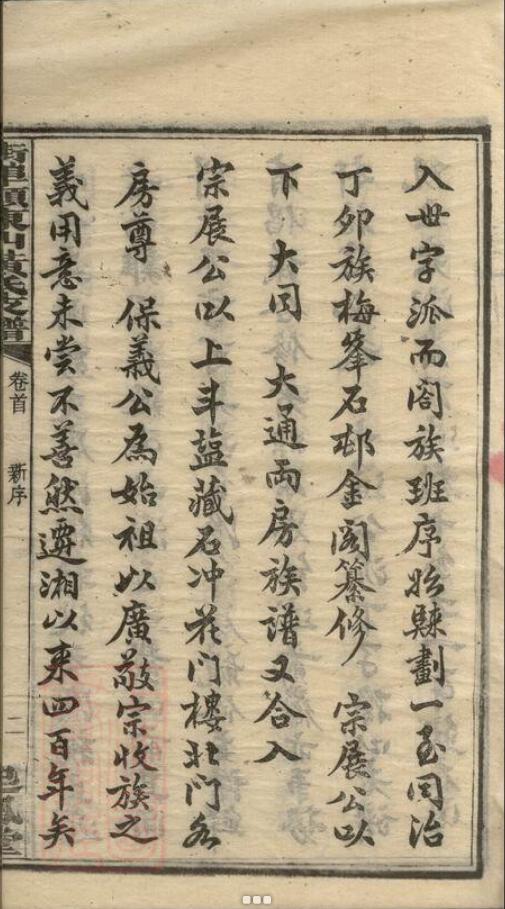 入世字派而閤族班序始劃一至同治
丁卯族梅峯石邨金閣纂修 宗展公以
下 大同 大通両房族譜又合入
宗展公以上斗盐藏石冲花門樓北門各
房尊 保義公為始祖以廣敬宗收族之
義用意未嘗不善然遷湘以来四百年矣
東山黄氏支譜 卷首 新序 二